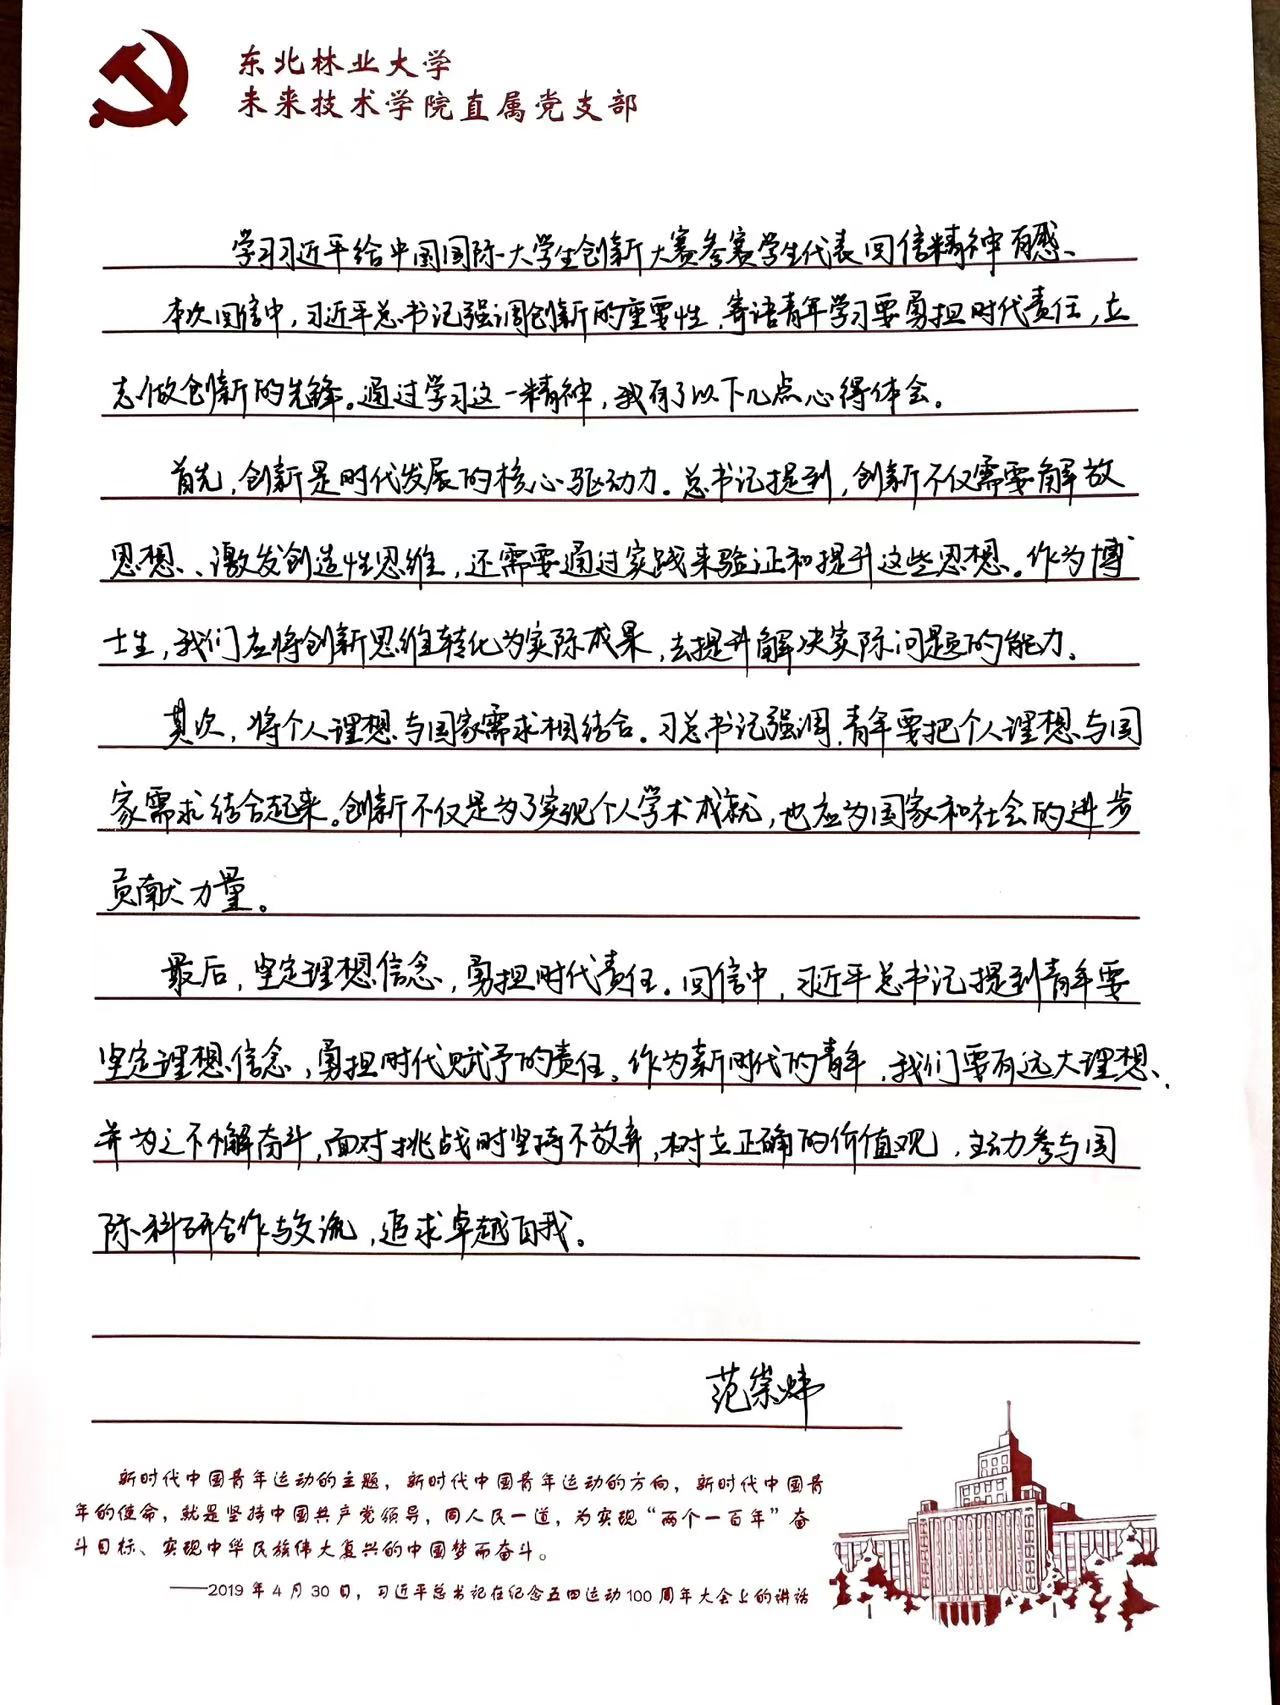 东北林业大学
未来技术学院直属党支部
学习习近平给中国国际大学生创新大赛参赛学生代表回信精神有感、
本次回信中，习近平总书记强调创新的重要性，寄语青年学习要勇担时代责任，立
志做创新的先锋。通过学习这一精神，我有了以下几点心得体会。
首先，创新是时代发展的核心驱动力。总书记提到，创新不仅需要解放
思想、激发创造性思维，还需要通过实践来验证和提升这些思想。作为博
士生，我们应将创新思维转化为实际成果，去提升解决实际问题的能力。
其次，将个人理想与国家需求相结合。习总书记强调，青年要把个人理想与国
家需求结合起来。创新不仅是为了实现个人学术成就，也应为国家和社会的进步
贡献力量。
最后，坚定理想信念，勇担时代责任。回信中，习近平总书记提到青年要
坚定理想信念，勇担时代赋予的责任。作为新时代的青年，我们要有远大理想、
并为之不懈奋斗，面对挑战时坚持不放弃，树立正确的价值观，主动参与国
际科研合作与交流，追求卓越自我。
范崇炜
新时代中国青年运动的主题，新时代中国青年运动的方向，新时代中国青
年的使命，就是坚持中国共产党领导，同人民一道，为实现“两个一百年”奋
斗目标、实现中华民族伟大复兴的中国梦而奋斗。
——2019年4月30日，习近平总书记在纪念五四运动100周年大会上的讲话